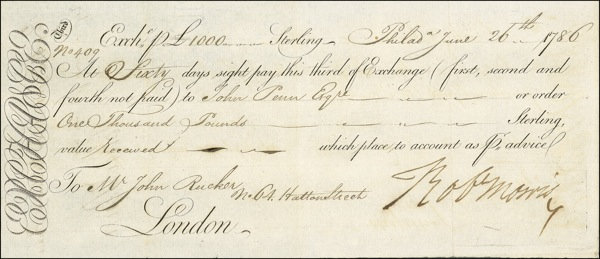 Third
Exchᵃ p £1000 Sterling Philadᵃ June 26th 1786
No 409
At Sixty days sight pay this third of Exchange (first, second and
fourth not paid) to John Penn Esqr or order
One Thousand Pounds Sterling,
value Received which place to account as P. advice
To Mr John Rucker No 64 Hatton Street Robt Morris
London